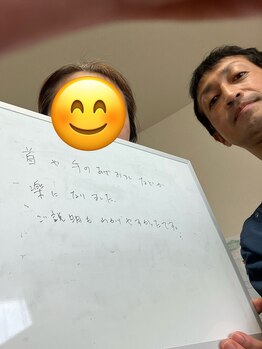 首や手のみだれなどが
楽になりました。
ご説明もわかりやすかったです。